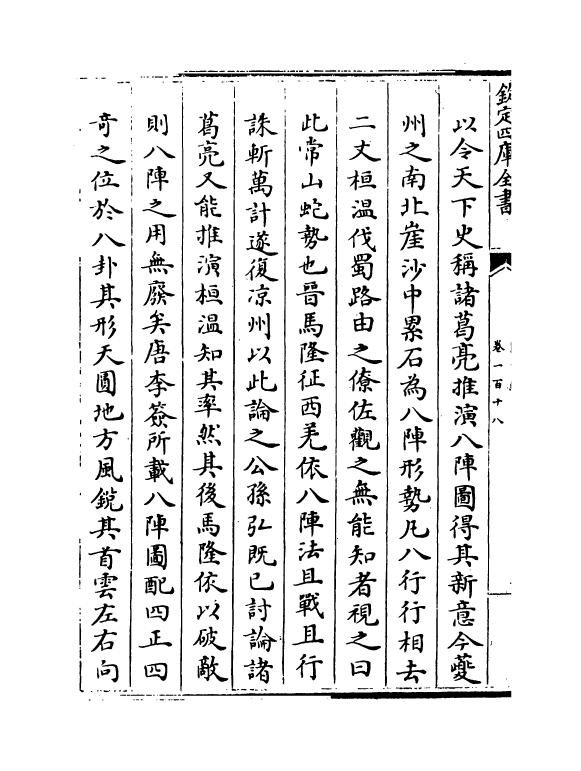 欽定四庫全書
卷一百十八
以令天下史稱諸葛亮推演八陣圖得其新意今夔
州之南北崖沙中累石為八陣形勢凡八行行相去
二丈桓温伐蜀路由之僚佐觀之無能知者視之曰
此常山蛇勢也晉馬隆征西羌依八陣法且戰且行
誅斬萬計遂復凉州以此論之公孫弘既已討論諸
葛亮又能推演桓温知其率然其後馬隆依以破敵
則八陣之用無廢矣唐李筌所載八陣圖配四正四
竒之位於八卦其形天圓地方風銳其首雲左右向